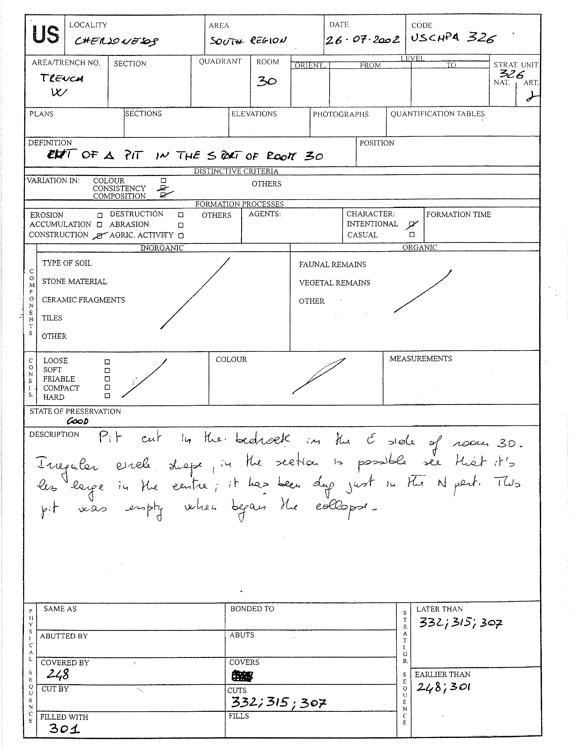 US
LOCALITY
CHERSONESOS
AREA
SOUTH REGION
DATE
26-07-2002
CODE
USCHPA 326
AREA/TRENCH NO.
TRENCH
W
SECTION
QUADRANT
ROOM
30
LEVEL
ORIENT. FROM TO
STRAT. UNIT
326
NAT. ART.
PLANS
SECTIONS
ELEVATIONS
PHOTOGRAPHS
QUANTIFICATION TABLES
DEFINITION
CUT OF A PIT IN THE S PART OF ROOM 30
POSITION
DISTINCTIVE CRITERIA
VARIATION IN: COLOUR
CONSISTENCY
COMPOSITION
OTHERS
FORMATION PROCESSES
EROSION DESTRUCTION OTHERS
ACCUMULATION ABRASION
CONSTRUCTION AGRIC. ACTIVITY
AGENTS:
CHARACTER:
INTENTIONAL
CASUAL
FORMATION TIME
COMPONENTS
INORGANIC
TYPE OF SOIL
STONE MATERIAL
CERAMIC FRAGMENTS
TILES
OTHER
ORGANIC
FAUNAL REMAINS
VEGETAL REMAINS
OTHER
CONSIS.
LOOSE
SOFT
FRIABLE
COMPACT
HARD
COLOUR
MEASUREMENTS
STATE OF PRESERVATION
GOOD
DESCRIPTION Pit cut in the bedrock in the E side of room 30.
Irregular circle shape, in the section is possible see that it's
les large in the centre; it has been dug just in the N part. This
pit was empty when began the collapse.
PHYSICAL SEQUENCE
SAME AS
BONDED TO
ABUTTED BY
ABUTS
COVERED BY
248
COVERS
CUT BY
CUTS
332; 315; 307
FILLED WITH
301
FILLS
STRATIGR. SEQUENCE
LATER THAN
332; 315; 307
EARLIER THAN
248; 301